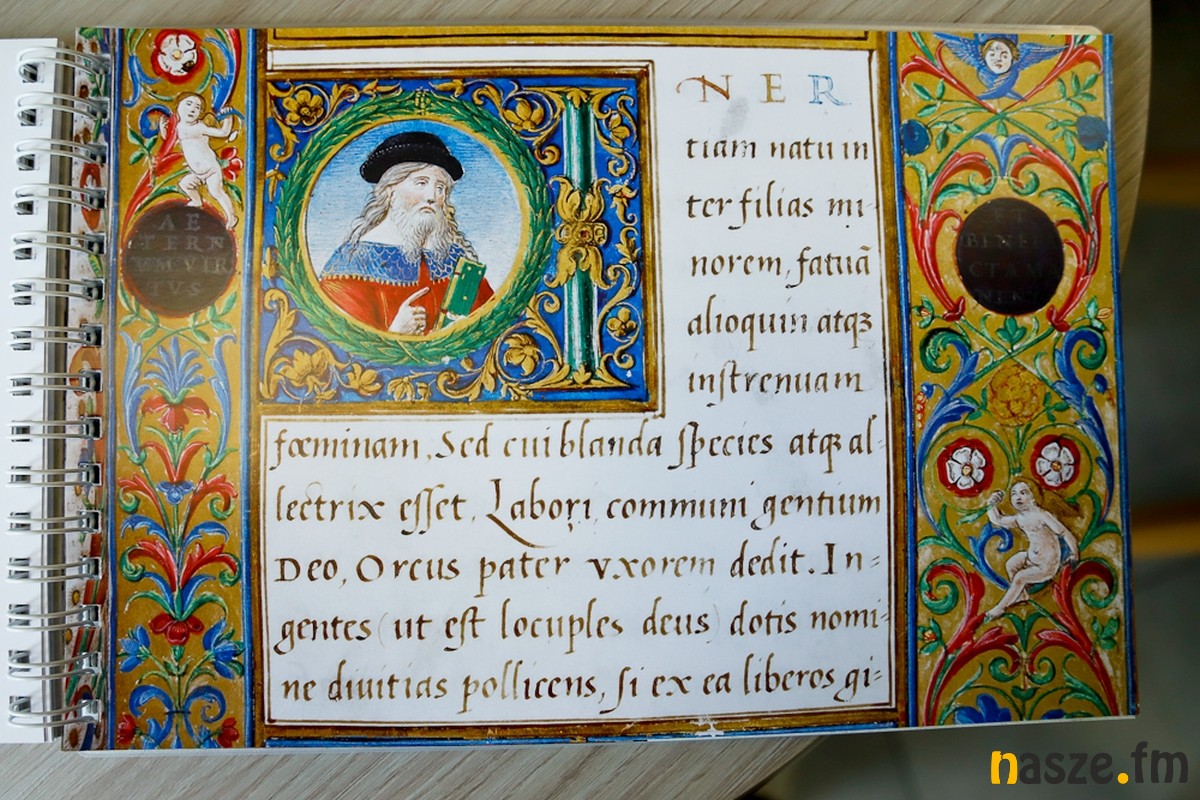 AE
TERN
VM VIR
TVS
I NER
tiam natu in
ter filias mi-
norem, fatuã
alioquin atqꝫ
instrenuam
fœminam, Sed cui blanda species atqꝫ al-
lectrix esset, Labori, communi gentium
Deo, Orcus pater vxorem dedit. In-
gentes (ut est locuples deus) dotis nomi-
ne diuitias pollicens, si ex ea liberos gi-
ET
nasze.fm